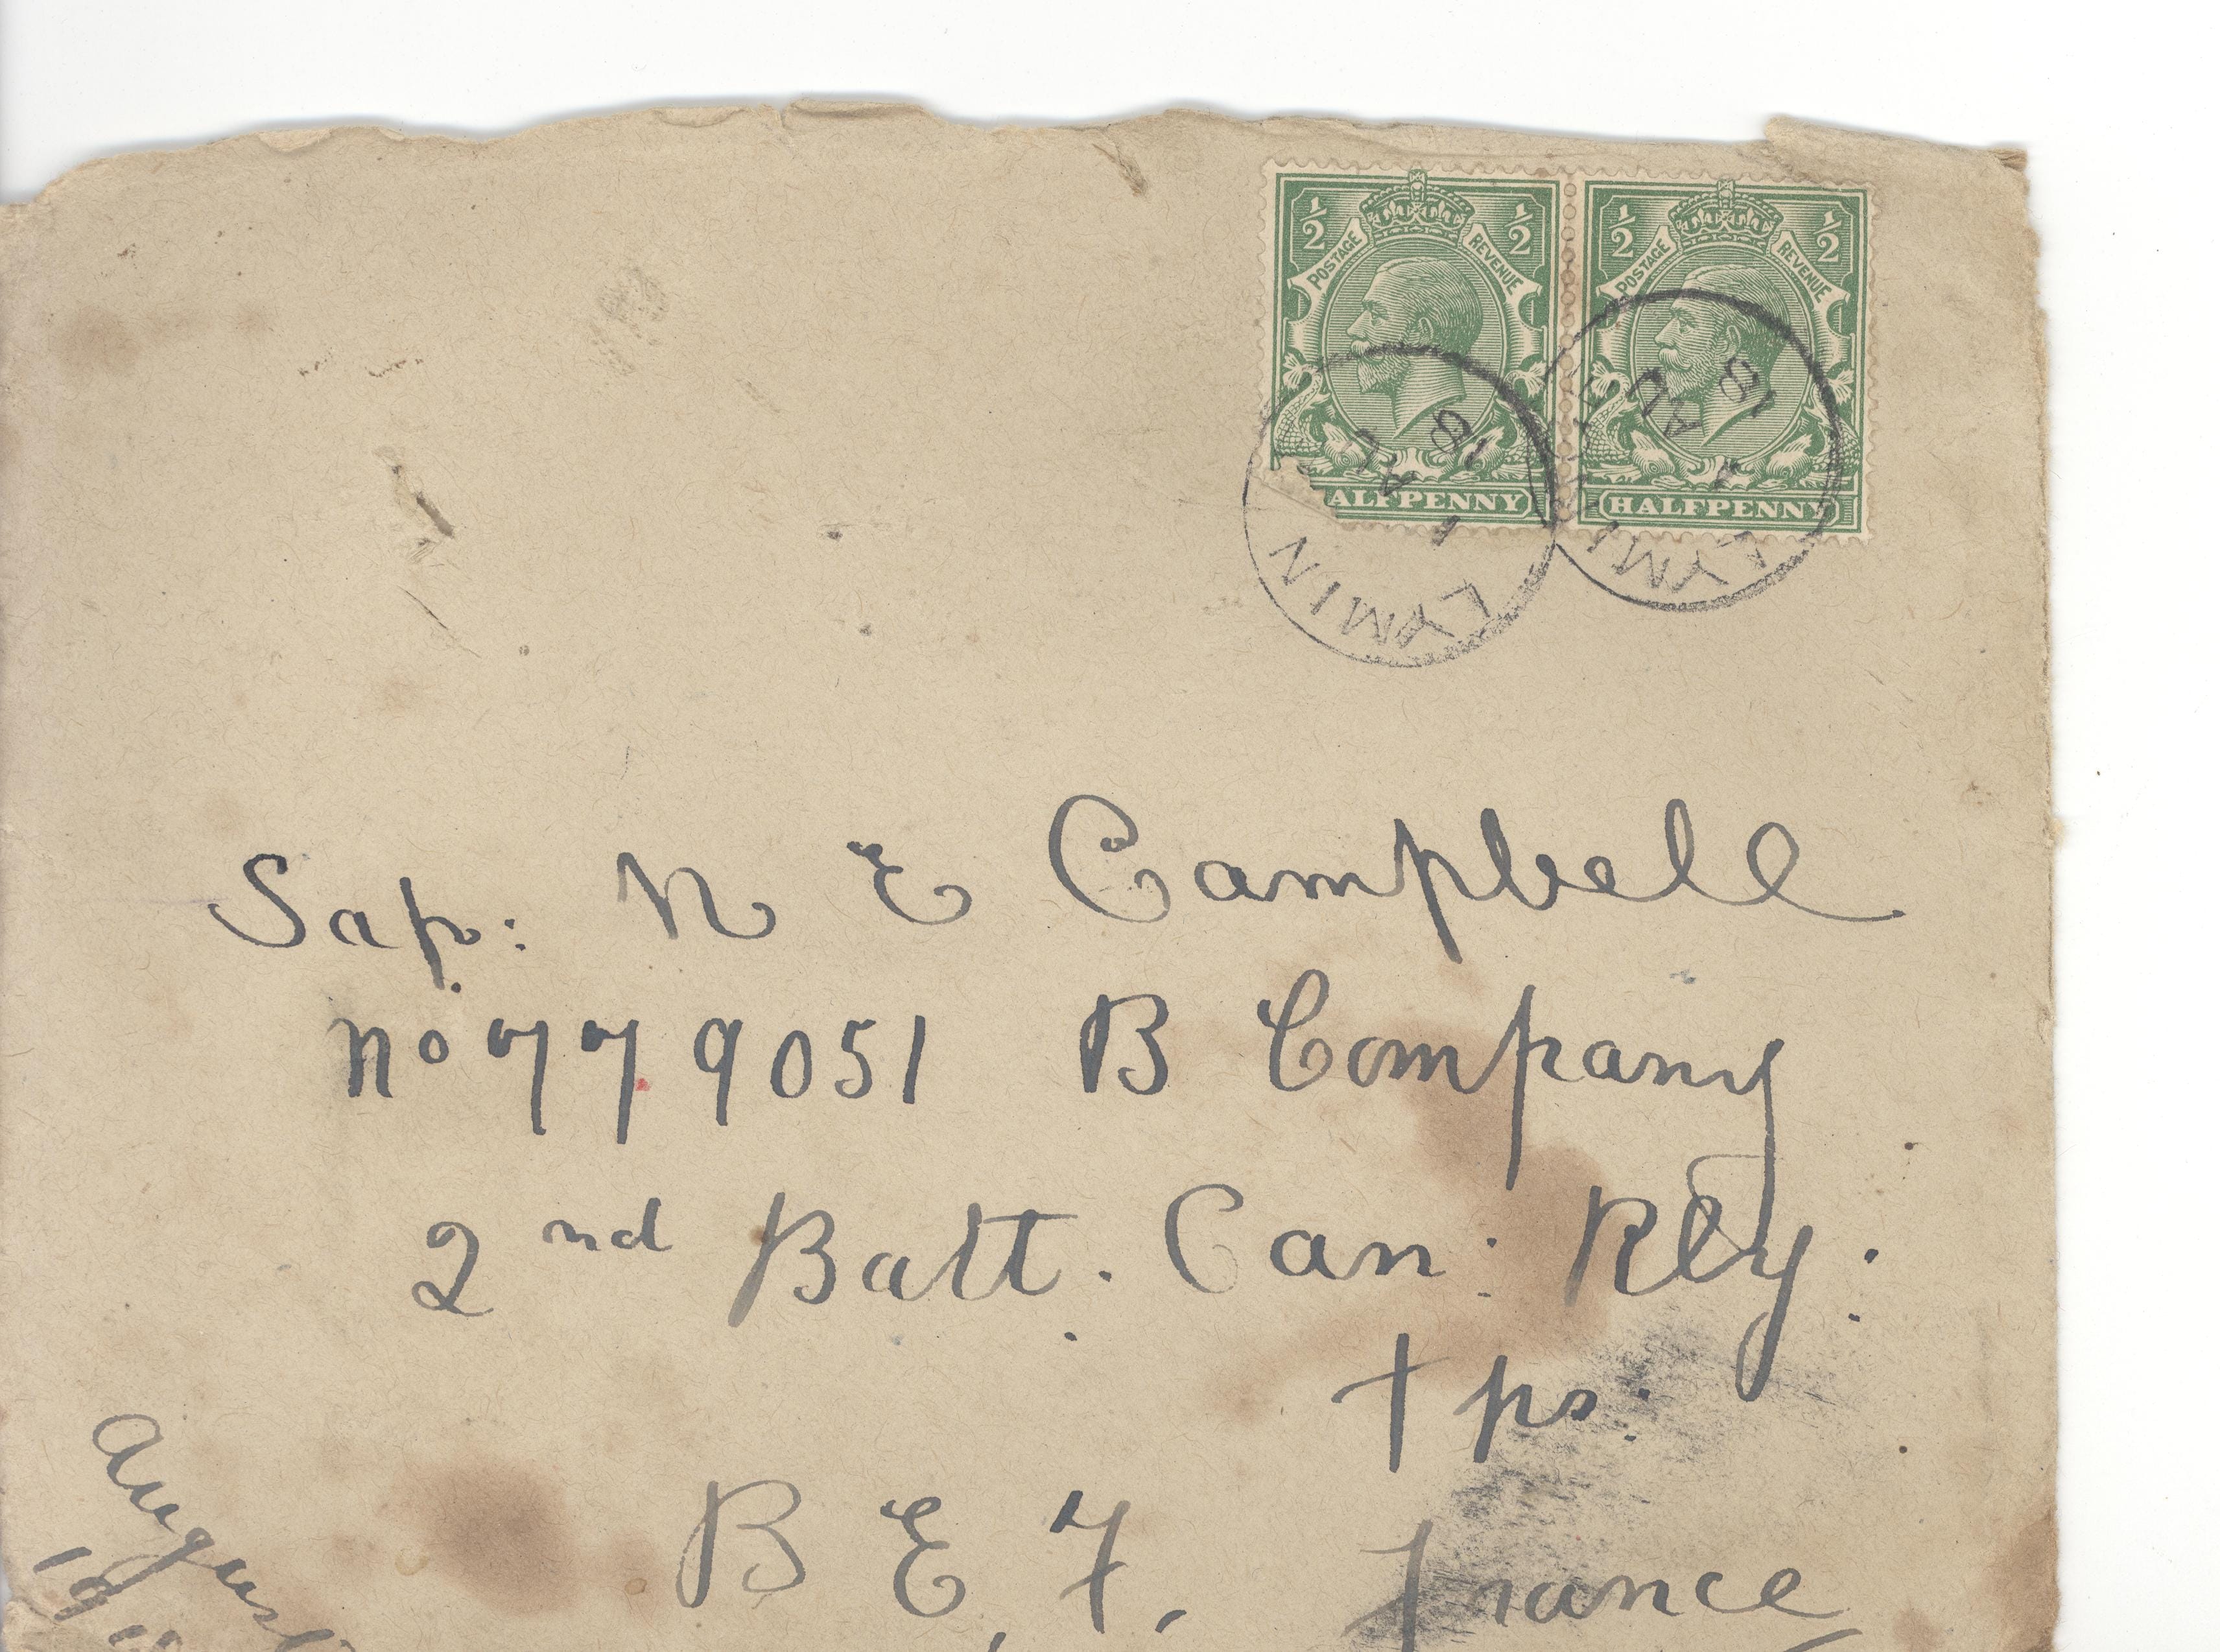 ½ POSTAGE REVENUE ½ ½ POSTAGE REVENUE ½
ALFPENNY HALFPENNY
18
AU
1
LYMIN
18
AU
1
LYMI
Sap: N E Campbell
No 779051 B Company
2nd Batt. Can: Rly:
tps:
B. E. F. France
August